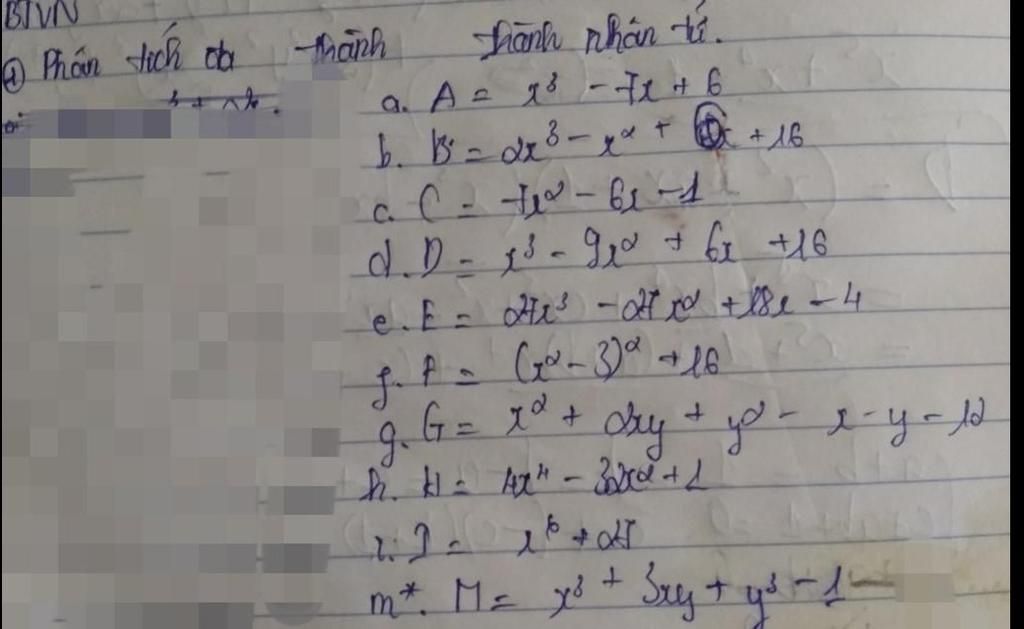 BTVN
① Phân tích đa thành thành nhân tử.
a. A = x³ - 7x + 6
b. B = 2x³ - x² + x + 16
c. C = -7x² - 6x - 1
d. D = x³ - 9x² + 6x + 16
e. E = 27x³ - 27x² + 18x - 4
f. F = (x² - 3)² + 16
g. G = x² + 2xy + y² - x - y - 12
h. H = 4x⁴ - 32x² + 1
i. I = x⁶ + 27
m*. M = x³ + 3xy + y³ - 1